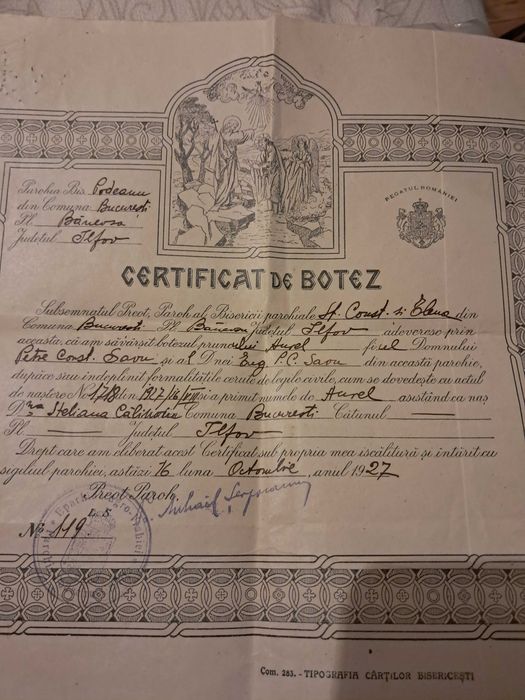 Parohia Bis. Podeanu
din Comuna Bucuresti
Pl. Băneasa
Județul Ilfov
REGATUL ROMÂNIEI
CERTIFICAT DE BOTEZ
Subsemnatul Preot, Paroh al Bisericii parohiale Sf. Const. și Elena din
Comuna Bucuresti Pl. Băneasa Județul Ilfov adeveresc prin
aceasta, că am săvârsit botezul pruncului Aurel fiul Domnului
Petre Const. Savu și al Dnei Eug. P.C. Savu din această parohie,
dupăce s'au indeplinit formalitățile cerute de legile civile, cum se dovedește cu actul
de naștere No din 1927 și a primit numele de Aurel asistând ca naș
Dra Steliana Comuna Bucuresti Cătunul
Pl. Județul Ilfov
Drept care am eliberat acest Certificat sub propria mea iscălitură și intărit cu
sigiliul parohiei, astăzi 16 luna Octombrie, anul 1927
Preot Paroh,
L. S
No 119
Mihail
Com. 283. - TIPOGRAFIA CĂRȚILOR BISERICEȘTI